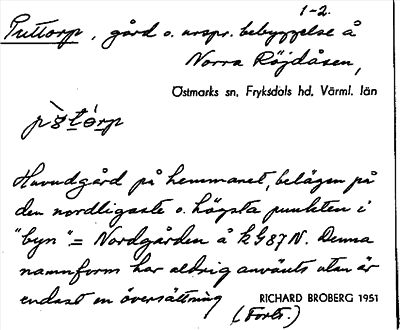 1-2.
Puttorp, gård o. urspr. bebyggelse å
Norra Röjdåsen,
Östmarks sn, Fryksdals hd, Värml. län
Huvudgård på hemmanet, belägen på
den nordligaste o. högsta punkten i
"byn" = Nordgården å k G 87 N. Denna
namnform har aldrig använts utan är
endast en översättning
RICHARD BROBERG 1951
(Forts.)